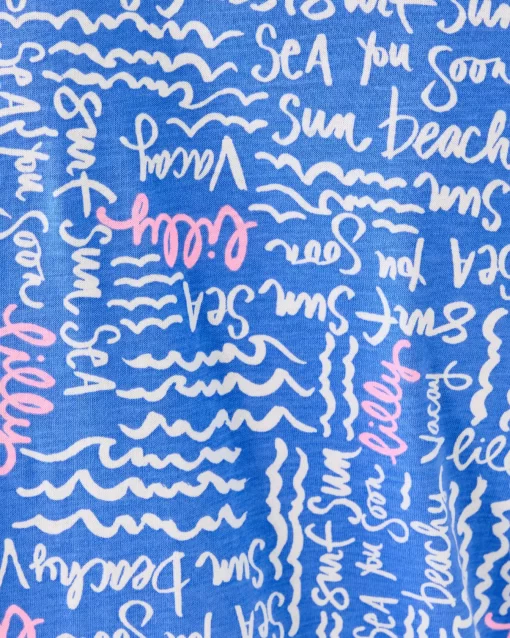 Surf Sun
SEA you Soon
Sun beachy
Vacay
lilly
Sun
SEA you Soon
Surf Sun SEA
SEA you Soon
Surf Sun SEA
lilly
lilly
Vacay
Surf Sun
SEA you Soon
beachy
Sun beachy
Sun
SEA